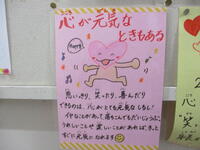 心が元気な
ときもある
Merry
思いっきり、笑ったり、喜んだり
できるのは、心がとても元気なしるし!
イヤなことがあって落ちこんでもだいじょうぶ。
うれしいことや楽しいことがあれば、きっと
すぐに元気になれます
心
笑